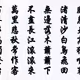 渚清沙白鳥飛迴
無邊落木蕭蕭下
不盡長江滾滾來
萬里悲秋常作客